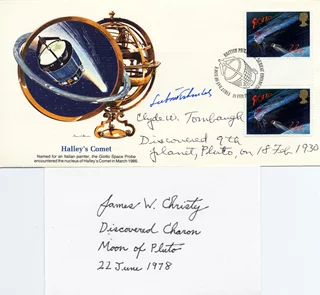 Halley's Comet
Named for an Italian painter, the Giotto Space Probe
encountered the nucleus of Halley's Comet in March 1986.
Clyde W. Tombaugh
Discovered 9th
planet, Pluto, on 18 Feb. 1930
James W. Christy
Discovered Charon
Moon of Pluto
22 June 1978